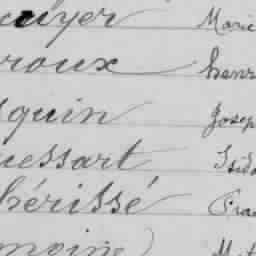 cuyer Marie
roux henr
squin Josep
uessart Isido
hérissé Fra
moine)